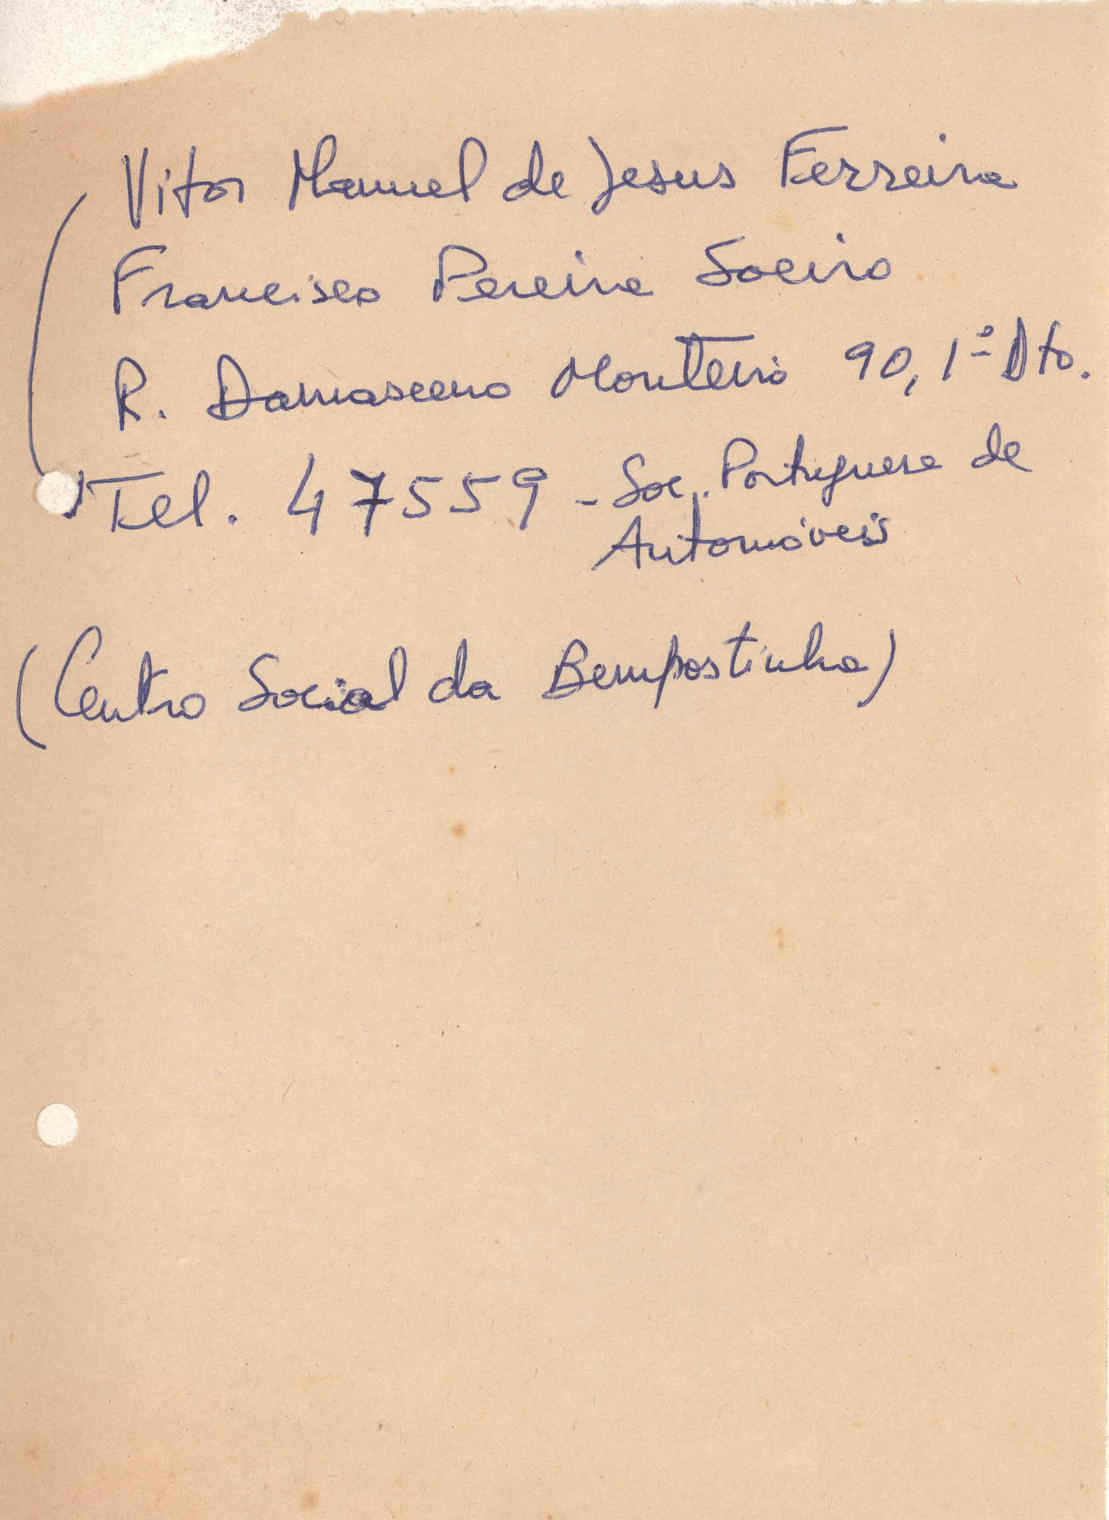 Vitor Manuel de Jesus Ferreira
Francisco Pereira Soeiro
R. Damasceno Monteiro 90, 1º Dto.
Tel. 47559 - Soc. Portuguesa de
Automóveis
(Centro Social da Bempostinha)